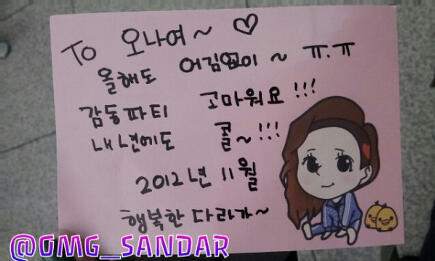 To 오나여~ ♡
올해도 어김없이~ ㅠ.ㅠ
감동파티 고마워요!!!
내년에도 콜~!!!
2012년 11월
행복한 다라가~
@OMG_SANDAR